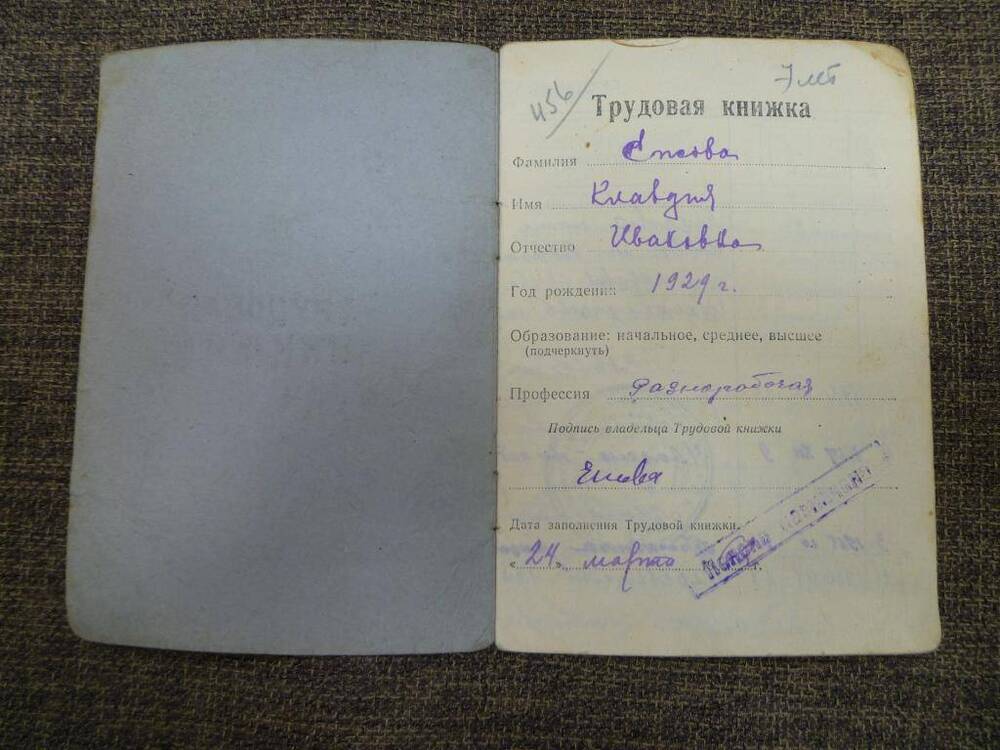 456/ 7 лет
Трудовая книжка
Фамилия
Имя Клавдия
Отчество Ивановна
Год рождения 1929 г.
Образование: начальное, среднее, высшее
(подчеркнуть)
Профессия Разнорабочая
Подпись владельца Трудовой книжки
Дата заполнения Трудовой книжки.
„24„ марта